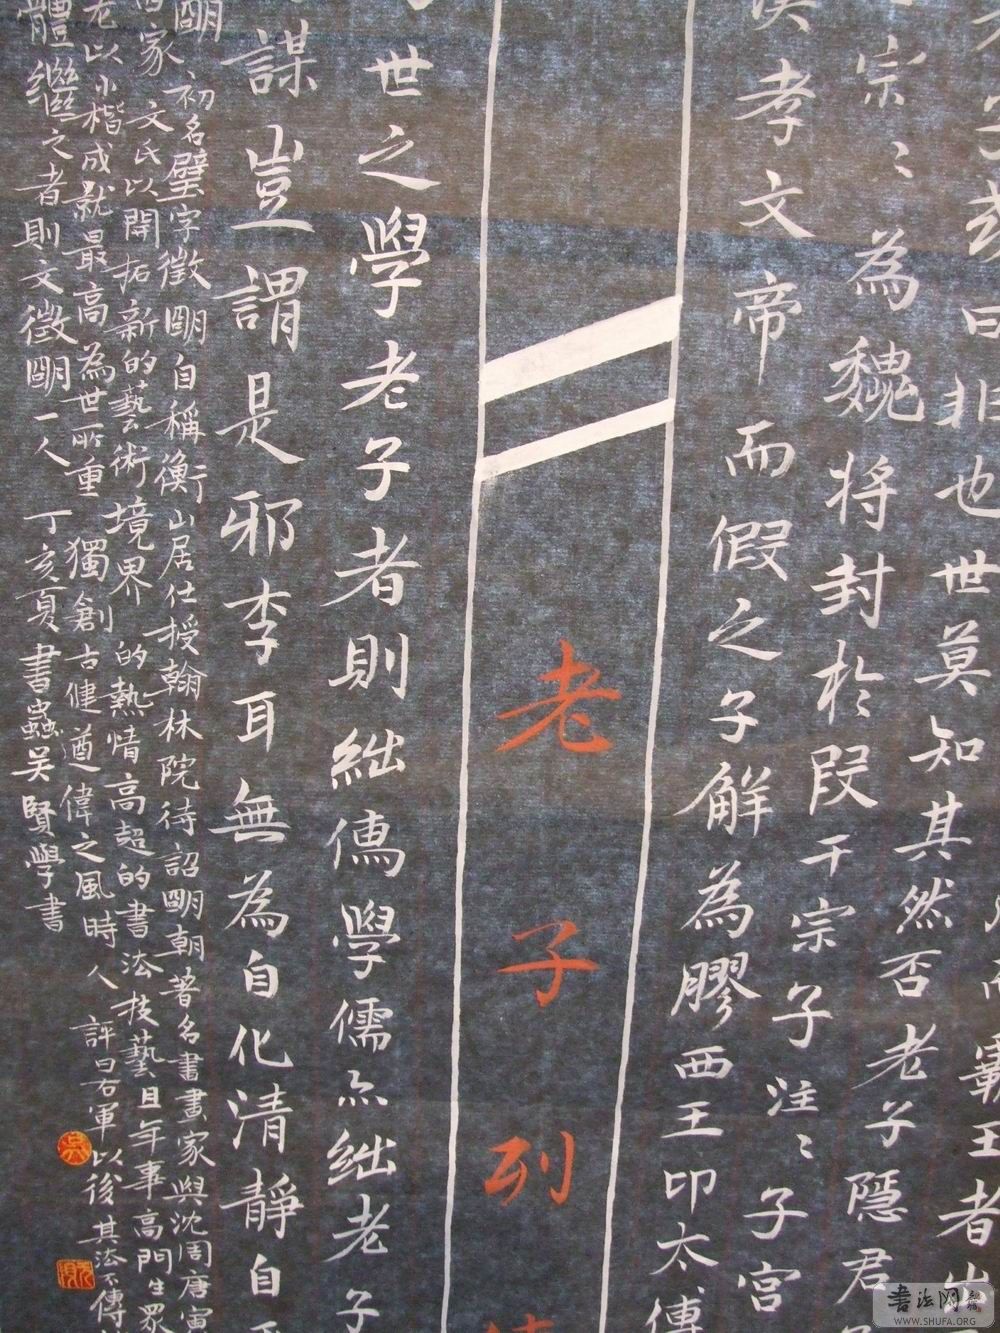 曰非也世莫知其然否老子隱君
宗〻為魏將封於段干宗子注〻子宮
漢孝文帝而假之子解為膠西王卬太傅
老子列傳
世之學老子者則絀儒學儒亦絀老子
謀豈謂是邪李耳無為自化清靜自
明初名璧字徵明自稱衡山居仕授翰林院待詔明朝著名書畫家與沈周唐寅
四家文氏以開拓新的藝術境界的熱情高超的書法技藝且年事高門生眾
老以小楷成就最高為世所重獨創古健遒偉之風時人評曰右軍以後其法不傳
體繼之者則文徵明一人丁亥夏書蟲吴賢學書
書法网
WWW.SHUFA.ORG